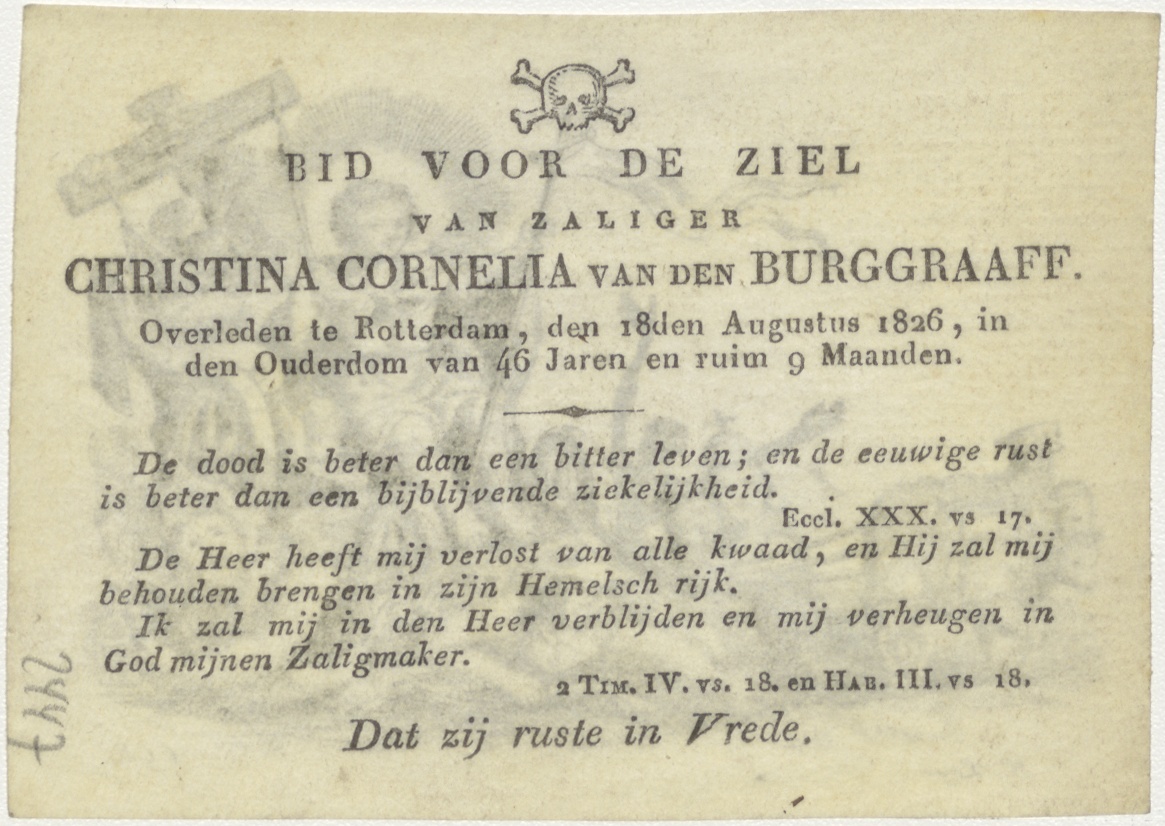 BID VOOR DE ZIEL
VAN ZALIGER
CHRISTINA CORNELIA VAN DEN BURGGRAAFF.
Overleden te Rotterdam, den 18den Augustus 1826, in
den Ouderdom van 46 Jaren en ruim 9 Maanden.
De dood is beter dan een bitter leven; en de eeuwige rust
is beter dan een bijblijvende ziekelijkheid.
Eccl. XXX. vs 17.
De Heer heeft mij verlost van alle kwaad, en Hij zal mij
behouden brengen in zijn Hemelsch rijk.
Ik zal mij in den Heer verblijden en mij verheugen in
God mijnen Zaligmaker.
2 TIM. IV. vs. 18. en HAB. III. vs 18.
Dat zij ruste in Vrede.
2447